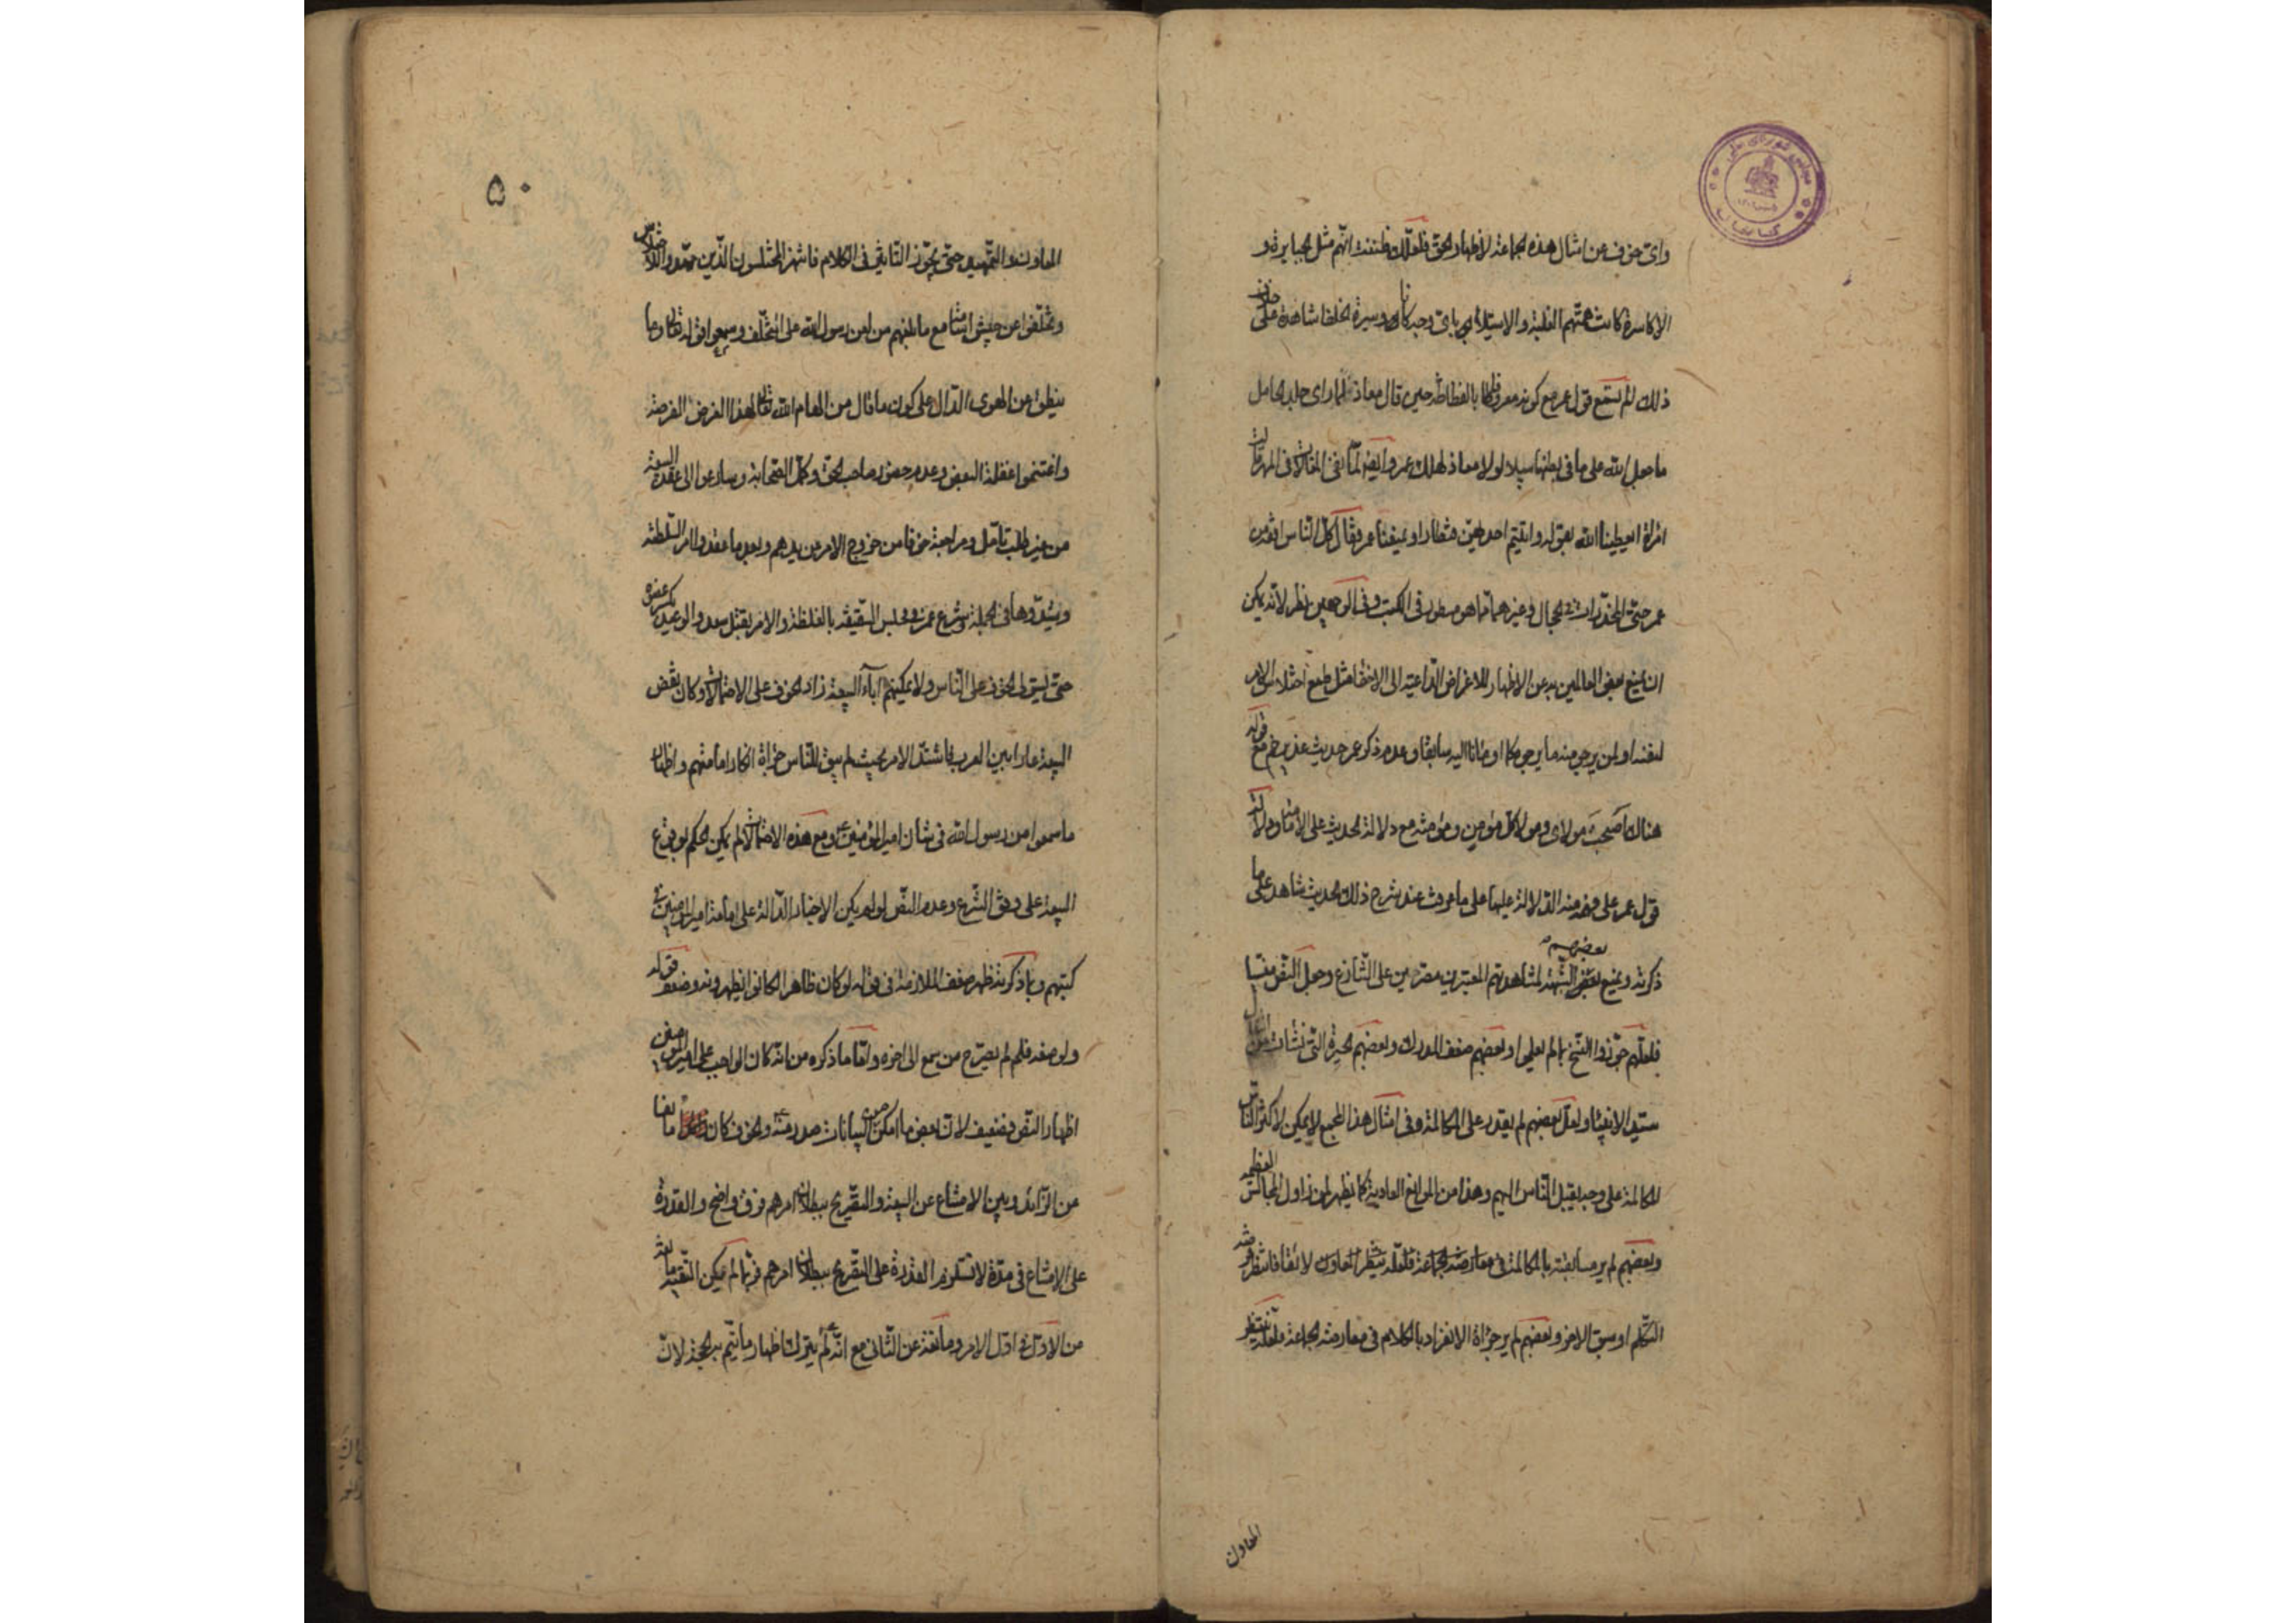 وای خوف عن امثال هذه الجماعة لاظهار الحق فلعلك ظننت انهم مثل الجبابرة و
الاكاسرة كانت همتهم الغلبة والاستيلاء بای وجه كان وسيرة الخلفا شاهدة على خلاف
ذلك الم تسمع قول عمر مع كونه معروفا بالفظاظة حين قال معاذ لما رای جلد الحامل
ما جعل الله على ما فی بطنها سبيلا لولا معاذ لهلك عمر وايضا لما نهی المغالات فی المهر قالت
امراة ايعطينا الله بقوله واتيتم احديهن قنطارا ويمنعنا عمر فقال كل الناس افقه من
عمر حتى المخدرات فی الحجال وغيرهما مما هو مسطور فی الكتب وفی الوجهين نظر لانه يمكن
ان يمنع بعض العالمين به عن الاظهار للاغراض الداعية الى الاخفا مثل طمع اختلاس الامر
لنفسه او لمن يرجو منه ما يرجو سابقا وعدم ذكر عمر حديث غدير خم مع قوله
هناك اصبحت مولای ومولا كل مؤمن ومؤمنة مع دلالة الحديث على الامامة ودلالة
قول عمر على فهمه منه الدلالة عليها على ما عرفت عند شرح ذلك الحديث شاهد على ما
ذكرته ويمنع بعضهم الشبهة لمشاهدتهم المعتبرين مصرين على التنازع وجعل النص منسيا
فلعلهم جوزوا النسخ بما لم يعلموا وبعضهم ضعف المدرك وبعضهم الحيرة التی نشات من انتقال
سيد الانبياء ولعل بعضهم لم يقدر على المكالمة وفی امثال هذا المجمع لا يمكن لاكثر الناس
المكالمة على وجه يقبل الناس اليهم وهذا من الموانع العادية كما يظهر لمن زاول المجالس العظيمة
وبعضهم لم ير مسابقته بالمكالمة فی معارضة الجماعة فلعله ينتظر المعاون لائقا فانتظر فرصة
التكلم او سبق الامر وبعضهم لم ير جراة الانفراد بالكلام فی معارضة الجماعة فلعله ينتظر
المعاون
۵۰
المعاون والتمهيد حتى يجوز التاثير فی الكلام فانتهز المختلسون الذين
وتخلفوا عن جيش اسامة مع ما بلغهم من لعن رسول الله على المتخلف وسمعوا قوله تعالى وما
ينطق عن الهوى الدال على كون ما قال من الهام الله تعالى لهذا الغرض الفرصة
واغتنموا غفلة البعض وعدم حضور صاحب الحق وكمل الصحابة وسارعوا الى عقد البيعة
من غير طلب تامل ومراجعة خوفا من خروج الامر من يدهم وبعد ما عقدوا امر السلطنة
وشيدوها فی الجملة وشرع عمر فی مجلس السقيفة بالغلظة والامر بقتل سعد والوعيد
حتى يستولی الخوف على الناس ولا يمكنهم اباء البيعة زاد الخوف على الاحتمالات وكان نقض
البيعة عارا بين العرب فاشتد الامر بحيث لم يبق للناس جراة انكار امامتهم واظهار
ما سمعوا من رسول الله فی شان امير المؤمنين ومع هذه الاحتمالات لم يمكن الحكم بوقوع
البيعة على وفق الشرع وعدم النص لو لم يكن الاخبار الدالة على امامة امير المؤمنين فی
كتبهم وبما ذكرته ظهر ضعف الملازمة فی قوله لو كان ظاهرا لكانوا يظهرونه وضعف قوله
ولو صفه فلم لم يصرح من سمع الى اخره واما ما ذكره من انه كان الواجب على امير المؤمنين
اظهار النص فضعيف لان بعض ما امكن من البيانات صدر منه والخوف كان مانعا
من الزائد وبين الامتناع عن البيعة والتصريح ببطلان امرهم فرق واضح والقدرة
على الامتناع فی مدة لا تستلزم القدرة على التصريح ببطلان امرهم فربما لم يكن التقية مانعة
من الاول فی اول الامر ومانعة عن الثانی مع انه لم يترك اظهار ما يتم به الحجة لان